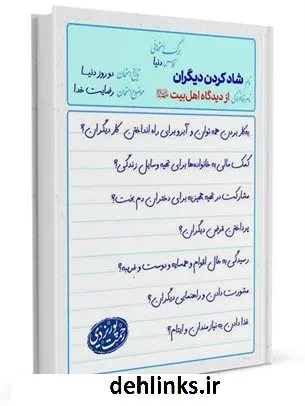 برگ امتحانی
درس: دنیا
نام: شاد کردن دیگران
تاریخ امتحان: دو روز دنیا
نام خانوادگی: از دیدگاه اهل‌بیت
موضوع امتحان: رضایت خدا
بکار بردن همه توان و آبرو برای راه انداختن کار دیگران؟
کمک مالی به خانواده‌ها برای تهیه وسایل زندگی؟
مشارکت در تهیه جهیزیه برای دختران دم بخت؟
پرداختن قرض دیگران؟
رسیدگی به حال اقوام و همسایه و دوست و غریبه؟
مشورت دادن و راهنمایی دیگران؟
غذا دادن به نیازمندان و ایتام؟
dehlinks.ir